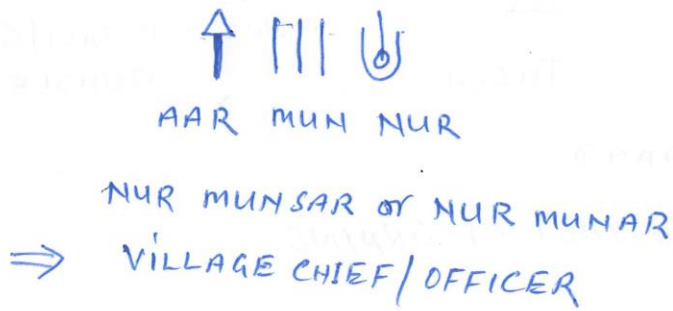 AAR MUN NUR
NUR MUNSAR or NUR MUNAR
⇒ VILLAGE CHIEF/OFFICER